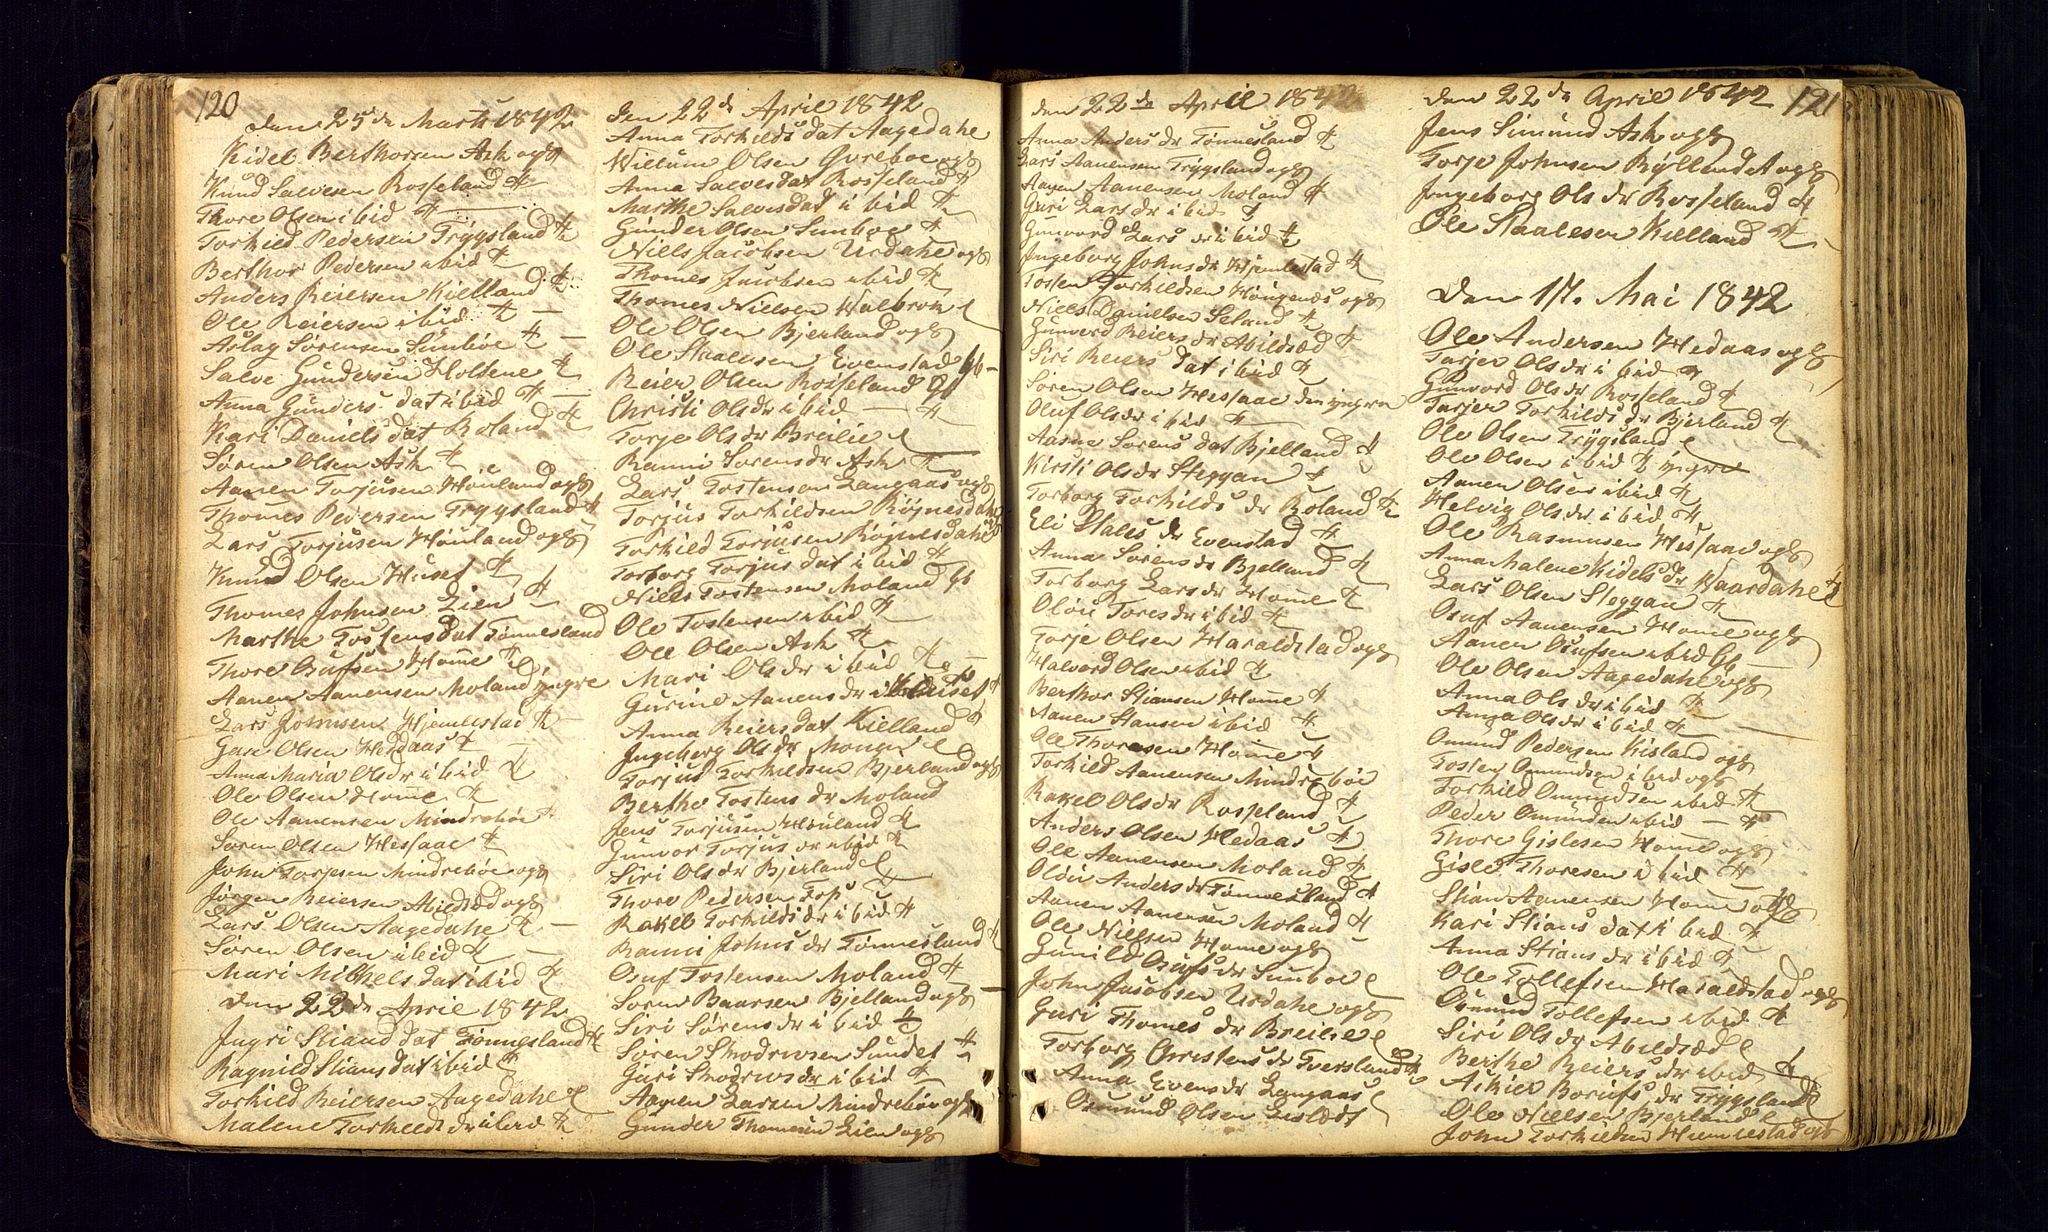 120
den 25de Marts 1842
Kidel Berthorsen Ask og g
Knud Salvesen Rosseland
Thore Olsen ibid
Torkild Pedersen Trygsland
Berthor Pedersen ibid
Anders Reiersen Kielland
Ole Reiersen ibid
Aslag Sørensen Simboe
Salve Gundersen Holtene
Anna Gunders dat ibid
Kari Daniels dat Roland
Søren Olsen Ask
Aanen Torjusen Høuland og g
Thomes Pedersen Trygsland
Lars Torjusen Høuland og g
Knud Olsen Huset
Thomes Johnsen Lien
Marthe Tostens dat Tønnesland
Thore Osufsen Home
Aanen Aanensen Moland yngre
Lars Johnsen Hjemlestad
Guri Olsen Hesdaas
Anna Maria Ols dr ibid
Ole Olsen Home
Ole Aanensen Mindrebøe
Søren Olsen Hessaae
John Torjesen Mindrebøe og g
Jørgen Reiersen Abildsæd og g
Lars Olsen Aagedahe
Søren Olsen ibid
Mari Mikkels dat ibid
den 22de April 1842
Ingri Stians dat Tønnesland
Ragnild Stians dat ibid
Torkild Reiersen Aagedahe
Malene Torkilds dr ibid
den 22de April 1842
Anna Torkilds dat Aagedahe
Willum Olsen Øvreboe og g
Anna Salves dat Rosseland
Marthe Salves dat ibid
Gunder Olsen Simboe
Niels Jacobsen Urdahe og g
Thomes Jacobsen ibid
Thomes Nielsen Walbrok
Ole Olsen Bjerland og g
Ole Staalesen Evenstad
Reier Olsen Rosseland
Christi Ols dr ibid
Torje Ols dr Breilie
Ranni Sørens dr Ask
Lars Tostensen Langaas og g
Torjus Torkildsen Røjnesdahe
Torkild Torjusen Røjnesdahe
Torborg Torjus dat ibid
Niels Tostensen Moland
Ole Tostensen ibid
Ole Olsen Ask
Mari Ols dr ibid
Gurine Aanens dr Huset
Anna Reiers dat Kielland
Ingeborg Ols dr Monen
Torjus Torkildsen Bjerland og g
Berthe Tostens dr Moland
Jens Torjusen Høuland
Gunvor Torjus dr ibid
Siri Ols dr Bjerland
Thore Pedersen Fos
Rakel Torkilds dr ibid
Ranni Johns dr Tønnesland
Osuf Tostensen Moland
Søren Baarsen Bjelland og g
Siri Sørens dr ibid
Søren Knodrudsen Sundet
Guri Knodruds dr ibid
Aanen Larsen Mindrebøe og g
Gunder Thomesen Lien og g
den 22de April 1842
Anna Anders dr Tønnesland
Lars Aanensen Trygsland og g
Aanen Aanensen Moland
Guri Lars dr ibid
Gunvord Lars dr ibid
Ingeborg Johns dr Hjemlestad
Tosten Torkildsen Hougenes og g
Niels Danielsen Seland
Gunvord Reiers dr Abildsæd
Siri Reiers dat ibid
Søren Olsen Hessaae den yngre
Oluf Ols dr ibid
Aasne Sørens dat Bjelland
Kirsti Ols dr Steggan
Torborg Torkilds dr Roland
Eli Stales dr Evenstad
Anna Sørens dr Bjelland
Torborg Lars dr Home
Oløu Tores dr ibid
Torje Olsen Haraldstad og g
Halvord Olsen ibid
Berthor Stiansen Home
Aanen Stansen ibid
Ole Thoresen Home
Torkild Aanensen Mindrebøe
Rakel Ols dr Rosseland
Anders Olsen Hedaas
Ole Aanensen Moland
Oløu Anders dr Tønnesland
Aanen Aanensen Moland
Ole Nielsen Home og g
Gunild Osufs dr Simboe
John Jacobsen Urdahe og g
Guri Thomes dr Breilie
Torborg Christens dr Tversland
Anna Evens dr Langaas
Osmund Olsen
den 22de April 1842
121
Jens Simund Ask og g
Torje Johnsen Røllend og g
Ingeborg Ols dr Rosseland
Ole Staalesen Kielland
Den 17. Mai 1842
Ole Andersen Hedaas og g
Torjer Ols dr ibid
Gunvord Ols dr Rosseland
Torjer Torkilds dr Bjerland
Ole Olsen Trygsland
Ole Olsen ibid yngre
Aanen Olsen ibid
Helvig Ols dr ibid
Ole Rasmusen Hessaae og g
Anna Malene Kidels dr Haardahe
Lars Olsen Steggan
Osuf Aanensen Home og g
Aanen Osufsen ibid
Ole Olsen Aagedahe og g
Anna Ols dr ibid
Anna Ols dr ibid
Omund Pedersen Kisland og g
Tosten Omundsen ibid og g
Torkild Omundsen ibid
Peder Omundsen ibid
Thore Gislesen Home og g
Gisle Thoresen ibid
Stian Aanensen Home og g
Kari Stians dat ibid
Anna Stians dr ibid
Ole Tollefsen Haraldstad og g
Osmund Tollefsen ibid
Siri Ols dr Abildsæd
Berthe Reiers dr ibid
Askier Borufs dr Trygsland
Ole Nielsen Bjerland
John Torkildsen Hiemlestad og g